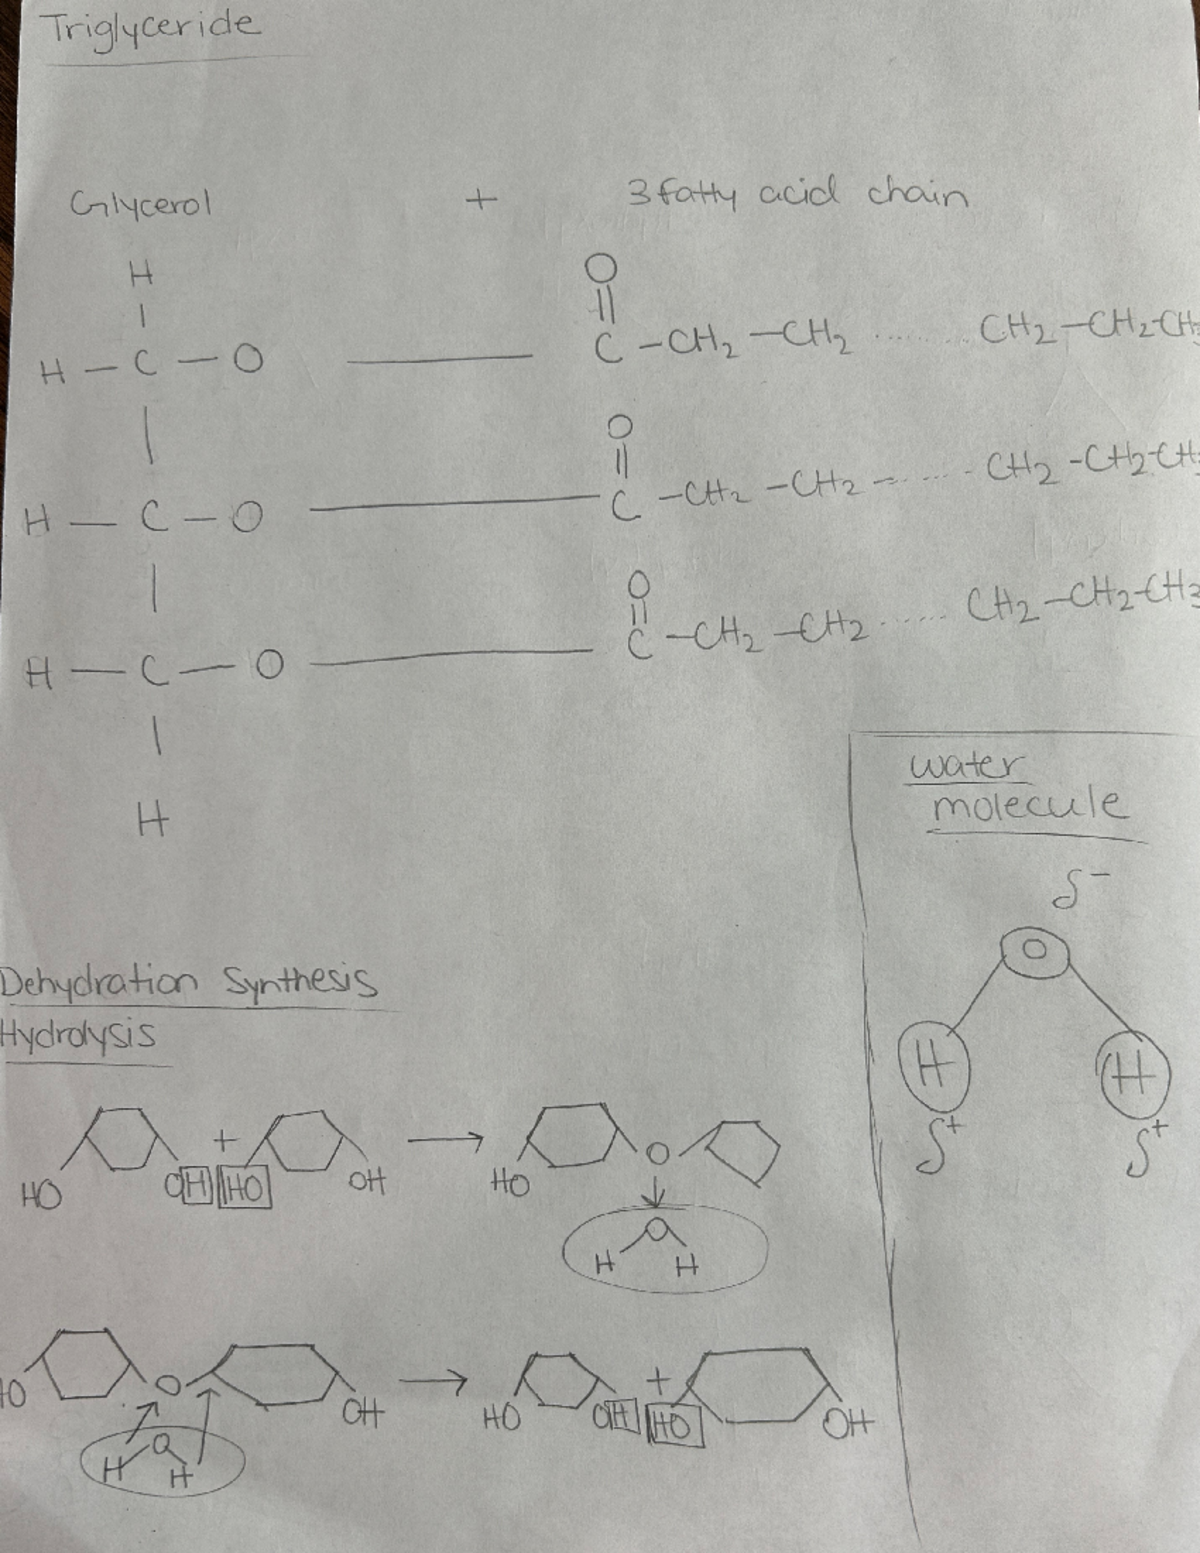 Triglyceride
Glycerol + 3 fatty acid chain
H
H - C - O
O
C - CH₂ - CH₂ ........ CH₂ - CH₂ - CH₃
H - C - O
O
C - CH₂ - CH₂ - ...... - CH₂ - CH₂ - CH₃
H - C - O
O
C - CH₂ - CH₂ ...... CH₂ - CH₂ - CH₃
H
water
molecule
δ⁻
O
H H
δ⁺ δ⁺
Dehydration Synthesis
Hydrolysis
HO OH + HO OH → HO O
O
H H
HO O OH → HO OH + HO OH
O
H H